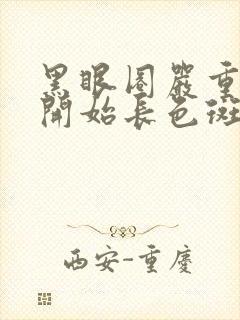 黑眼圈嚴重
開始長色斑
西安-重慶